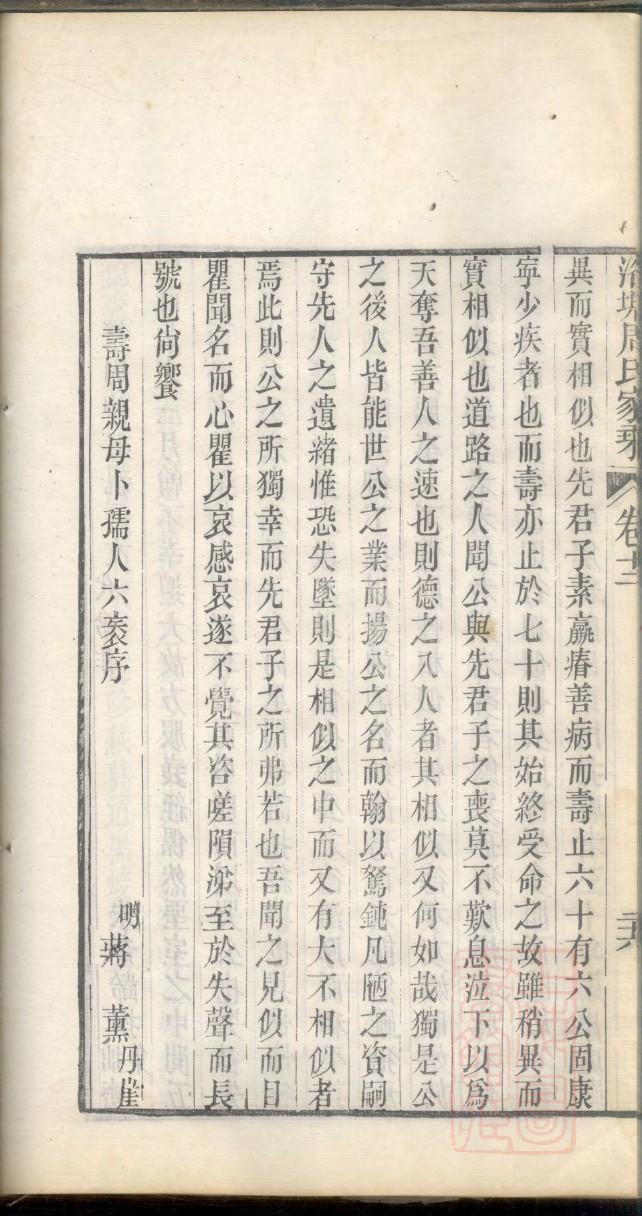 洛塘周氏家乘 卷十三 二六
異而實相似也先君子素羸瘠善病而壽止六十有六公固康
寧少疾者也而壽亦止於七十則其始終受命之故雖稍異而
實相似也道路之人聞公與先君子之喪莫不歎息泣下以爲
天奪吾善人之速也則德之入人者其相似又何如哉獨是公
之後人皆能世公之業而揚公之名而翰以駑鈍凡陋之資嗣
守先人之遺緒惟恐失墜則是相似之中而又有大不相似者
焉此則公之所獨幸而先君子之所弗若也吾聞之見似而目
瞿聞名而心瞿以哀感哀遂不覺其咨嗟隕涕至於失聲而長
號也尙饗
壽周親母卜孺人六袠序
明 蔣 薰 丹崖